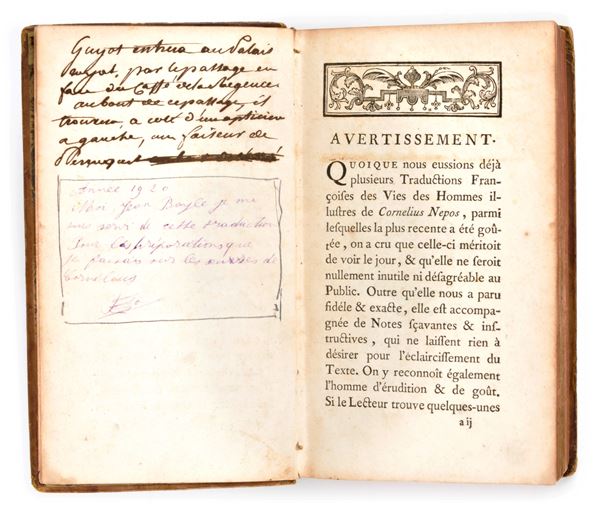 Guyot entrera au Palais
Royal, par le passage en
face du Caffé de la Régence
au bout de ce passage, il
trouvera a coté d'un opticien
a gauche, un faiseur de
Perruques
Année 1920
Moi Jean Bayle je me
suis servi de cette traduction
pour les préparations que
je faisais sur les œuvres de
Cornélius
AVERTISSEMENT.
QUOIQUE nous eussions déjà
plusieurs Traductions Fran-
çoises des Vies des Hommes il-
lustres de Cornelius Nepos, parmi
lesquelles la plus recente a été goû-
tée, on a cru que celle-ci méritoit
de voir le jour, & qu'elle ne seroit
nullement inutile ni désagréable au
Public. Outre qu'elle nous a paru
fidéle & exacte, elle est accompa-
gnée de Notes sçavantes & ins-
tructives, qui ne laissent rien à
désirer pour l'éclaircissement du
Texte. On y reconnoît également
l'homme d'érudition & de goût.
Si le Lecteur trouve quelques-unes
a ij